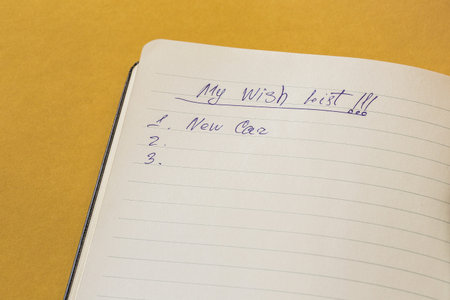 My Wish List !!!
1. New Car
2.
3.